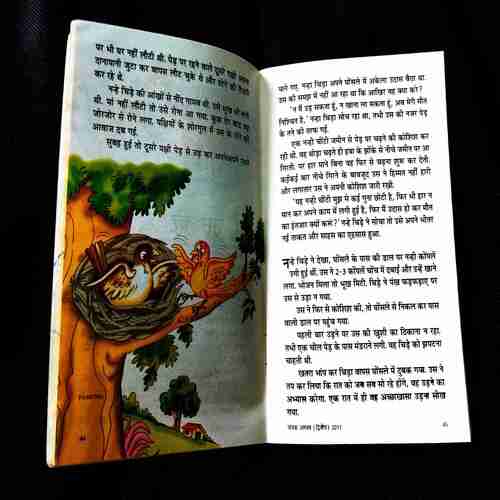 पर भी घर नहीं लौटी थी. पेड़ पर रहने वाले दूसरे पक्षी अपना
दानापानी जुटा कर वापस लौट चुके थे और सोने की तैयारी
कर रहे थे.
नन्हे चिड़े की आंखों से नींद गायब थी. उसे भूख भी लगी
थी. मां नहीं लौटी तो उसे रोना आ गया. कुछ देर बाद वह
जोरजोर से रोने लगा. पक्षियों के शोरगुल में उस के रोने की
आवाज दब गई.
सुबह हुई तो दूसरे पक्षी पेड़ से उड़ कर अपनेअपने रास्ते
44
चले गए. नन्हा चिड़ा अपने घोंसले में अकेला उदास बैठा था.
उस की समझ में नहीं आ रहा था कि आखिर वह क्या करे?
'न मैं उड़ सकता हूं, न खाना ला सकता हूं, अब मेरी मौत
निश्चित है,' नन्हा चिड़ा सोच रहा था, तभी उस की नजर पेड़
के तने की तरफ गई.
एक नन्ही चींटी जमीन से पेड़ पर चढ़ने की कोशिश कर
रही थी. वह थोड़ा चढ़ते ही हवा के झोंके से नीचे जमीन पर आ
गिरती. पर हार माने बिना वह फिर से चढ़ना शुरू कर देती.
कईकई बार नीचे गिरने के बावजूद उस ने हिम्मत नहीं हारी
और लगातार उस ने अपनी कोशिश जारी रखी.
'यह नन्ही चींटी मुझ से कई गुना छोटी है, फिर भी हार न
मान कर अपने काम में लगी हुई है, फिर मैं उदास हो कर मौत
का इंतजार क्यों करूं?' नन्हे चिड़े ने सोचा तो उसे अपने भीतर
नई ताकत और साहस का एहसास हुआ.
नन्हे चिड़े ने देखा, घोंसले के पास की डाल पर नन्ही कोंपलें
उगी हुई थीं. उस ने 2-3 कोंपलें चोंच में दबाईं और उन्हें खाने
लगा. भोजन मिला तो भूख मिटी. चिड़े ने पंख फड़फड़ाए पर
उस से उड़ा न गया.
उस ने फिर से कोशिश की, तो घोंसले से निकल कर पास
वाली डाल पर पहुंच गया.
पहली बार उड़ने पर उस की खुशी का ठिकाना न रहा.
तभी एक चील पेड़ के पास मंडराने लगी. वह चिड़े को झपटना
चाहती थी.
खतरा भांप कर चिड़ा वापस घोंसले में दुबक गया. उस ने
तय कर लिया कि रात को जब सब सो रहे होंगे, वह उड़ने का
अभ्यास करेगा. एक रात में ही वह अच्छाखासा उड़ना सीख
गया.
चंपक अगस्त (द्वितीय) 2011
45